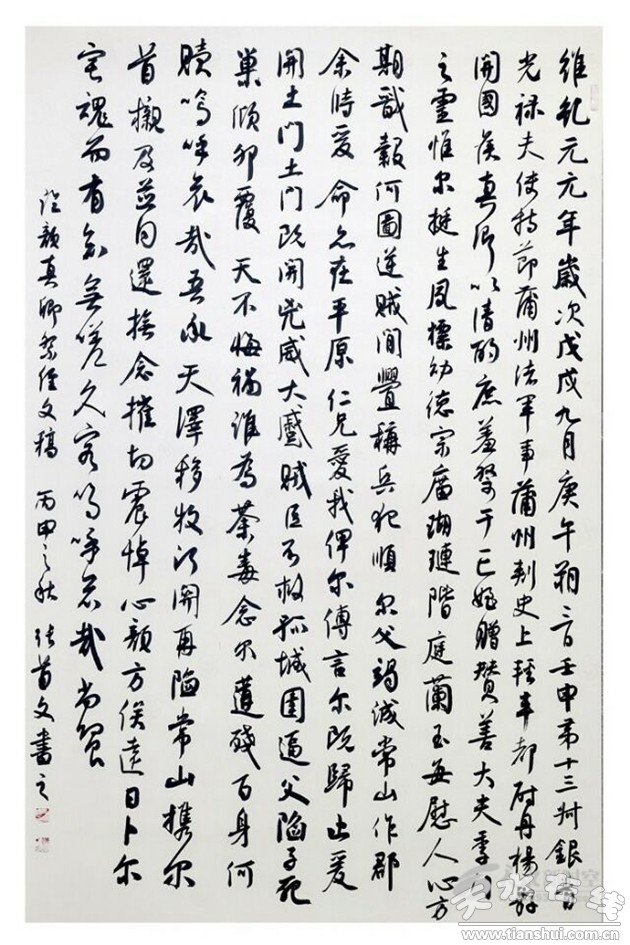 維乾元元年歲次戊戌九月庚午朔三日壬申第十三叔銀青
光禄夫使持節蒲州諸軍事蒲州刺史上輕車都尉丹楊縣
開國侯真卿以清酌庶羞祭于亡姪贈贊善大夫季明
之靈惟尔挺生夙標幼德宗廟瑚璉階庭蘭玉每慰人心方
期戩穀何圖逆賊間釁稱兵犯順尔父竭誠常山作郡
余時受命亦在平原仁兄愛我俾尔傳言尔既歸止爰
開土門土門既開兇威大蹙賊臣不救孤城圍逼父陷子死
巢傾卵覆天不悔禍誰為荼毒念尔遘殘百身何
贖嗚呼哀哉吾承天澤移牧河關再陷常山攜尔
首櫬及茲同還撫念摧切震悼心顏方俟遠日卜尔
宅魂而有知無嗟久客嗚呼哀哉尚饗
顏真卿祭侄文稿 丙申之秋 張首文書之
天水在线
www.tianshui.com.cn